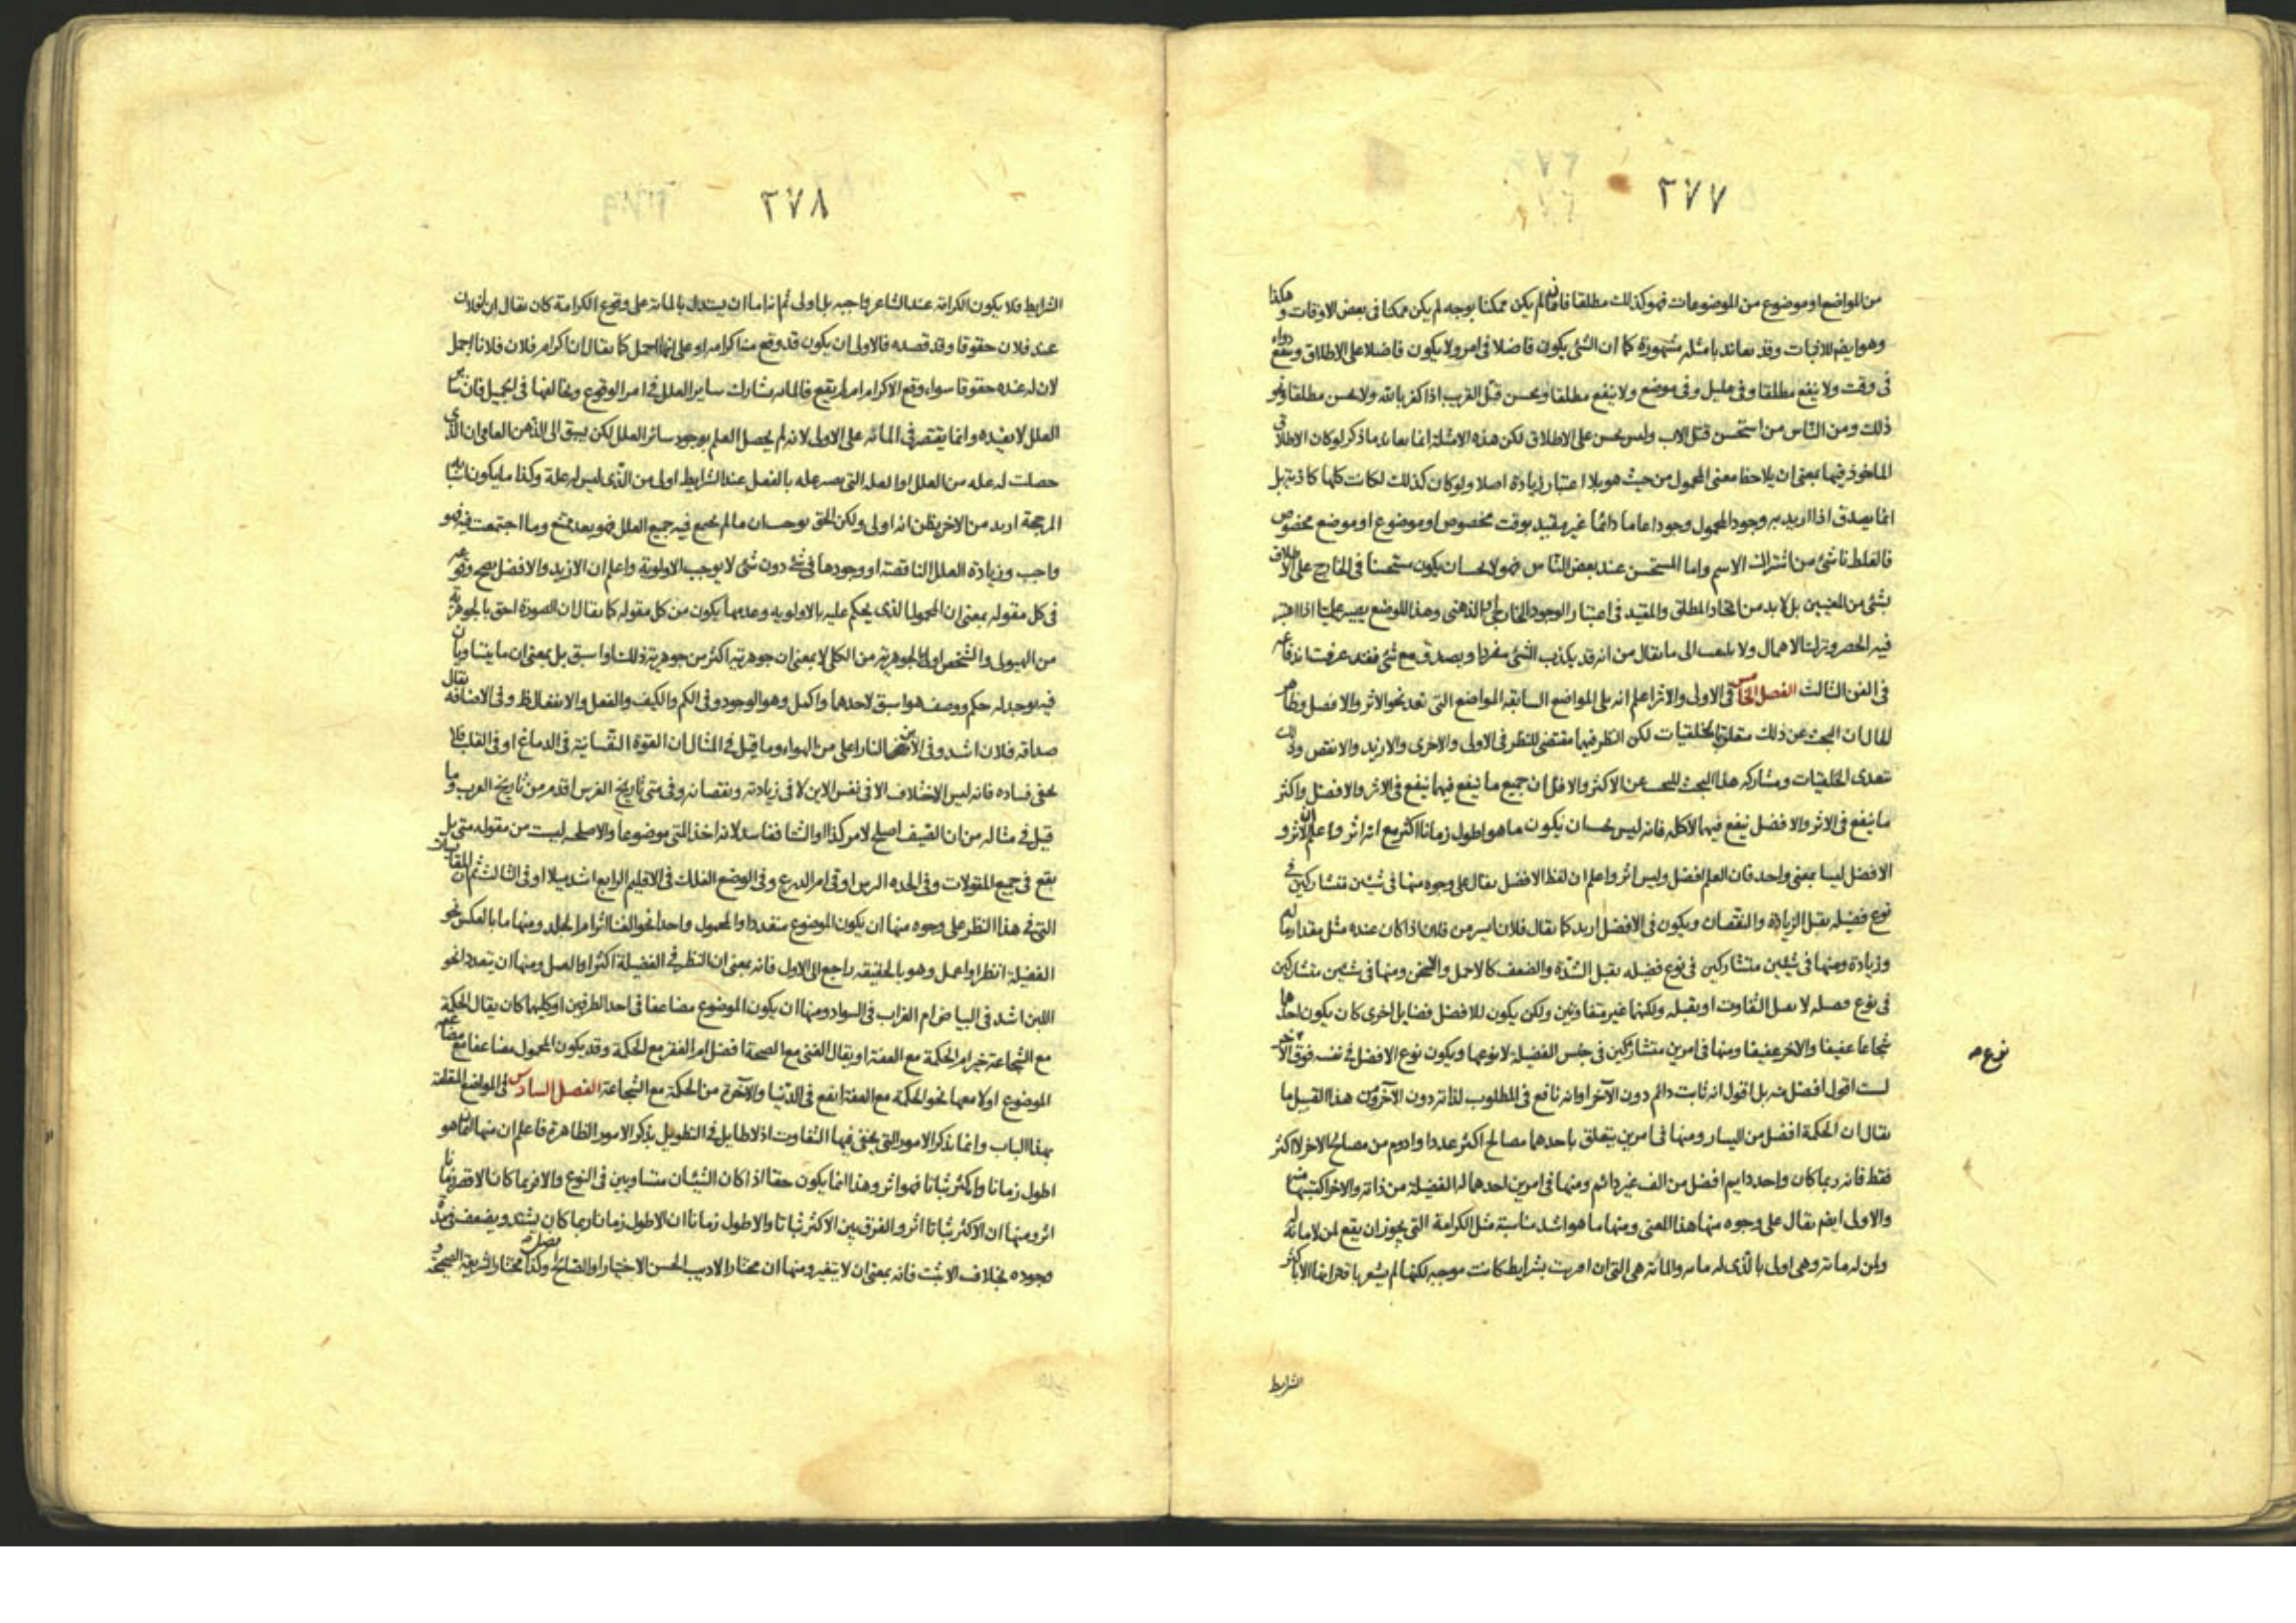 ٢٧٧
من المواضع او موضوع من الموضوعات فهو كذلك مطلقا فانه ما لم يكن ممكنا بوجه لم يكن ممكنا فى بعض الاوقات وهكذا
وهو ايضم للاثبات وقد يعاند بامثلة مشهورة كما ان الشئ يكون فاضلا فى امر ولا يكون فاضلا على الاطلاق وينفع دواء
فى وقت ولا ينفع مطلقا وفى قليل وفى موضع ولا ينفع مطلقا ويحسن قتل القريب اذا كفر بالله ولا يحسن مطلقا ونحو
ذلك ومن الناس من استحسن قتل الاب وليس يحسن على الاطلاق لكن هذه الامثلة انما يعاند ما ذكر لو كان الاطلاق
الماخوذ فيها بمعنى ان يلاحظ معنى المحمول من حيث هو بلا اعتبار زيادة اصلا ولو كان كذلك لكانت كلها كاذبة بل
انما يصدق اذا اريد به وجود المحمول وجودا عاما دائما غير مقيد بوقت مخصوص او موضوع او موضع مخصوص
فالغلط ناشئ من اشتراك الاسم واما المستحسن عند بعض الناس فهو لا يجب ان يكون مستحسنا فى الخارج على الاطلاق
بشئ من المعنيين بل لا بد من اتحاد المطلق والمقيد فى اعتبار الوجود الخارجى او الذهنى وهذا الموضع يصير علميا اذا اعتبر
فيه الحصر وترك الاهمال ولا يلتفت الى ما يقال من انه قد يكذب الشئ مفردا ويصدق مع شئ فقد عرفت اندفاعه
فى الفن الثالث الفصل الخامس فى الاولى والاثر اعلم انه يلى المواضع السابقة المواضع التى تعد نحو الاثر والافضل وظاهر
الحال ان البحث عن ذلك متعلق بالخلقيات لكن النظر فيها مقتضى للنظر فى الاولى والاحرى والازيد والانقص وذلك
يتعدى الخلقيات ومشاركة هذا البحث للبحث عن الاكثر والاقل ان جميع ما ينفع فيها ينفع فى الاثر والافضل واكثر
ما ينفع فى الاثر والافضل ينفع فيها لا كله فانه ليس يجب ان يكون ما هو اطول زمانا اكثر مع انه اثر واعلم ان الاثر و
الافضل ليسا بمعنى واحد فان العلم افضل وليس اثر واعلم ان لفظ الافضل يقال على وجوه منها فى شيئين متشاركين فى
نوع فضيلة يقبل الزيادة والنقصان ويكون فى الافضل ازيد كما يقال فلان ايسر من فلان اذا كان عنده مثل مقدار ماله
وزيادة ومنها فى شيئين متشاركين فى نوع فضيلة يقبل الشدة والضعف كالاجمل والاسخن ومنها فى شيئين متشاركين
فى نوع فضيلة لا يقبل التفاوت او يقبله ولكنها غير متفاوتين ولكن يكون للافضل فضايل اخرى كان يكون احدهما
شجاعا عفيفا والاخر عفيفا ومنها فى امرين متشاركين فى جنس الفضيلة لا نوعها ويكون نوع الافضل فى نفسه فوق الاخر
نوع صح
لست اقول افضل منه بل اقول انه ثابت دائم دون الآخر او انه نافع فى المطلوب لذاته دون الآخر ومن هذا القبيل ما
يقال ان الحكمة افضل من اليسار ومنها فى امرين يتعلق باحدهما مصالح اكثر عددا وادوم من مصالح الاخر لا اكثر
فقط فانه ربما كان واحد دايم افضل من الف غير دائم ومنها فى امرين احدهما له الفضيلة من ذاته والاخر اكتسبها منه
والاولى ايضم يقال على وجوه منها هذا المعنى ومنها ما هو اشد مناسبة مثل الكرامة التى يجوز ان يقع لمن لا ماتة له
ولمن له ماتة وهى اولى بالذى له ماتة والماتة هى التى ان اقترنت بشرايط كانت موجبة لكنها لم يشعر باقترانها الا باكثر
الشرايط
٢٧٨
الشرايط فلا يكون الكرامة عند الشاعر واجبة بل اولى ثم انه اما ان يستدل بالماتة على وقوع الكرامة كان يقال ان لفلان
عند فلان حقوقا وقد قصده فالاولى ان يكون قد وقع منه اكرامه او على انها اجمل كما يقال ان اكرام فلان فلانا اجمل
لان له عنده حقوقا سواء وقع الاكرام ام لم يقع فالماتة يشارك ساير العلل فى امر الوقوع ويخالفها فى الجميل فان ساير
العلل لا يفيده وانما يقتصر فى الماتة على الاولى لانه لم يحصل العلم بوجود سائر العلل لكن يسبق الى الذهن العامى ان الذى
حصلت له علة من العلل او العلة التى يصير علة بالفعل عند الشرايط اولى من الذى ليس له علة وكذا ما يكون اسبابه
المرجحة ازيد من الاخر يظن انه اولى ولكن الحق يوجب ان ما لم يجمع فيه جميع العلل فهو بعد ممتنع وما اجتمعت فيه فهو
واجب وزيادة العلل الناقصة او وجودها فى شئ دون شئ لا يوجب الاولوية واعلم ان الازيد والافضل يصح وقوعه
فى كل مقولة بمعنى ان المحمول الذى يحكم عليه بالاولوية وعدمها يكون من كل مقولة كما يقال ان الصورة احق بالجوهرية
من الهيولى والشخص اولى بالجوهرية من الكلى لا بمعنى ان جوهريته اكثر من جوهرية ذلك او اسبق بل بمعنى ان ما يتساويان
فيه يوجد له حكم ووصف هو اسبق لاحدهما واكمل وهو الوجود وفى الكم والكيف والفعل والانفعال ظ وفى الاضافة يقال
صداقة فلان اشد وفى الاين النار اعلى من الهواء وما قيل فى المثال ان القوة النفسانية فى الدماغ او فى القلب فلا
يخفى فساده فانه ليس الاختلاف الا فى نفس الاين لا فى زيادته ونقصانه وفى متى تاريخ الفرس اقدم من تاريخ العرب وما
قيل فى مثاله من ان الصيف اصلح لامر كذا او الشتا ففاسد لانه اخذ المتى موضوعا والاصلحية ليست من مقولة متى بل
يقع فى جميع المقولات وفى الجدة الترس اوقى ام الدرع وفى الوضع الفلك فى الاقليم الرابع اشد ميلا او فى الثالث ثم ان المقايسات
التى فى هذا النظر على وجوه منها ان يكون الموضوع متعددا والمحمول واحدا نحو الغنا اثر ام الجلد ومنها ما بالعكس نحو
الفضيلة انظر او اعمل وهو بالحقيقة راجع الى الاول فانه بمعنى ان النظر فى الفضيلة اكثر او العمل ومنها ان يتعددا نحو
اللبن اشد فى البياض ام الغراب فى السواد ومنها ان يكون الموضوع مضاعفا فى احد الطرفين او كليهما كان يقال الحكمة
مع الشجاعة خير ام الحكمة مع العفة او يقال الغنى مع الصحة افضل ام الفقر مع الحكمة وقد يكون المحمول مضاعفا مع مضاعفة
الموضوع او لا معها نحو الحكمة مع العفة انفع فى الدنيا والآخرة من الحكمة مع الشجاعة الفصل السادس فى المواضع المتعلقة
بهذا الباب وانما يذكر الامور التى يخفى فيها التفاوت اذ لا طايل فى التطويل بذكر الامور الظاهرة فاعلم ان منها ان ما هو
اطول زمانا واكثر ثباتا فهو اثر وهذا انما يكون حقا اذا كان الشيئان متساويين فى النوع والا فربما كان الاقصر زمانا
اثر ومنها ان الاكثر ثباتا اثر والفرق بين الاكثر ثباتا والاطول زمانا ان الاطول زمانا ربما كان يشتد ويضعف فى مدة
وجوده بخلاف الاثبت فانه بمعنى ان لا يتغير ومنها ان مختار الاديب الحسن الاختيار او الصالح افضل وكذا مختار الشريعة الصحيحة و